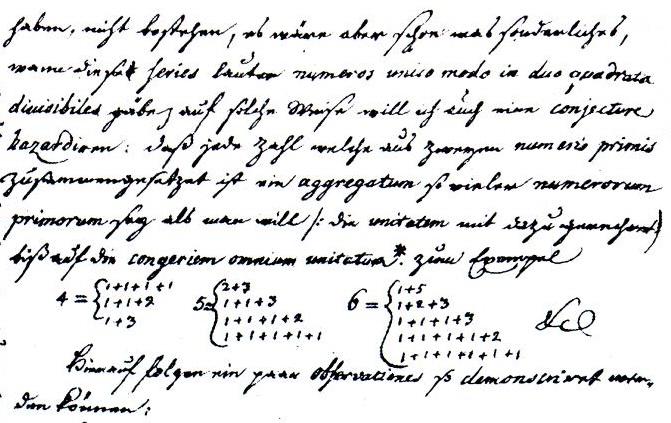 haben, nicht bestehen, es wäre aber schon was sonderliches,
wann diese series lauter numeros unico modo in duo quadrata
divisibiles gäbe, auf solche Weise will ich auch eine conjecture
hazardiren: daß jede Zahl welche aus zweyen numeris primis
zusammengesetzet ist ein aggregatum so vieler numerorum
primorum sey als man will /: die unitatem mit dazu gerechnet :/
biß auf die congeriem omnium unitatum*. zum Exempel
4 = { 1+1+1+1 5 = { 2+3 6 = { 1+5
1+1+2 1+1+3 1+2+3
1+3 1+1+1+2 1+1+1+3
1+1+1+1+1 1+1+1+1+2
1+1+1+1+1+1 &c
Hierauf folgen ein paar observationes so demonstriret wer-
den können: